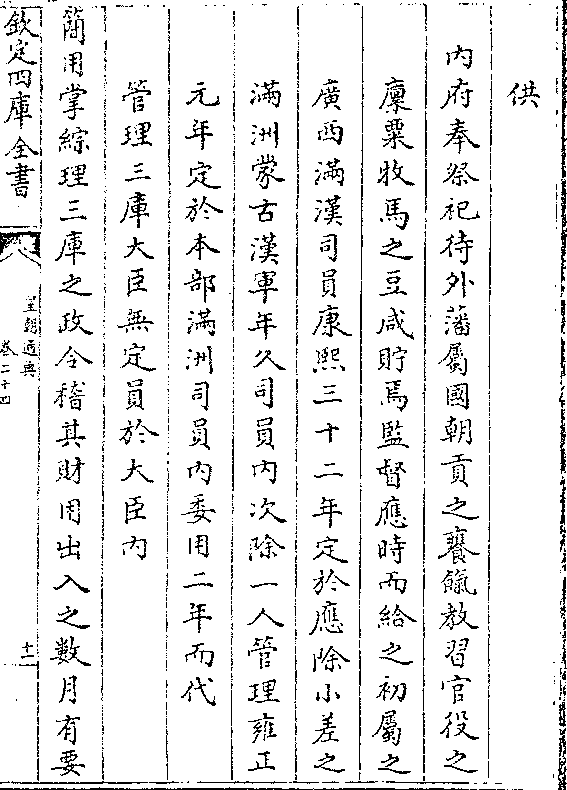 供
內府奉祭祀待外藩屬國朝貢之饔餼教習官役之
廩粟牧馬之豆咸貯焉監督應時而給之初屬之
廣西滿漢司員康熙三十二年定於應除小差之
滿洲蒙古漢軍年久司員內次除一人管理雍正
元年定於本部滿洲司員內委用二年而代
管理三庫大臣無定員於大臣內
簡用掌綜理三庫之政令稽其財用出入之數月有要
欽定四庫全書
皇朝通典
卷二十四
十一